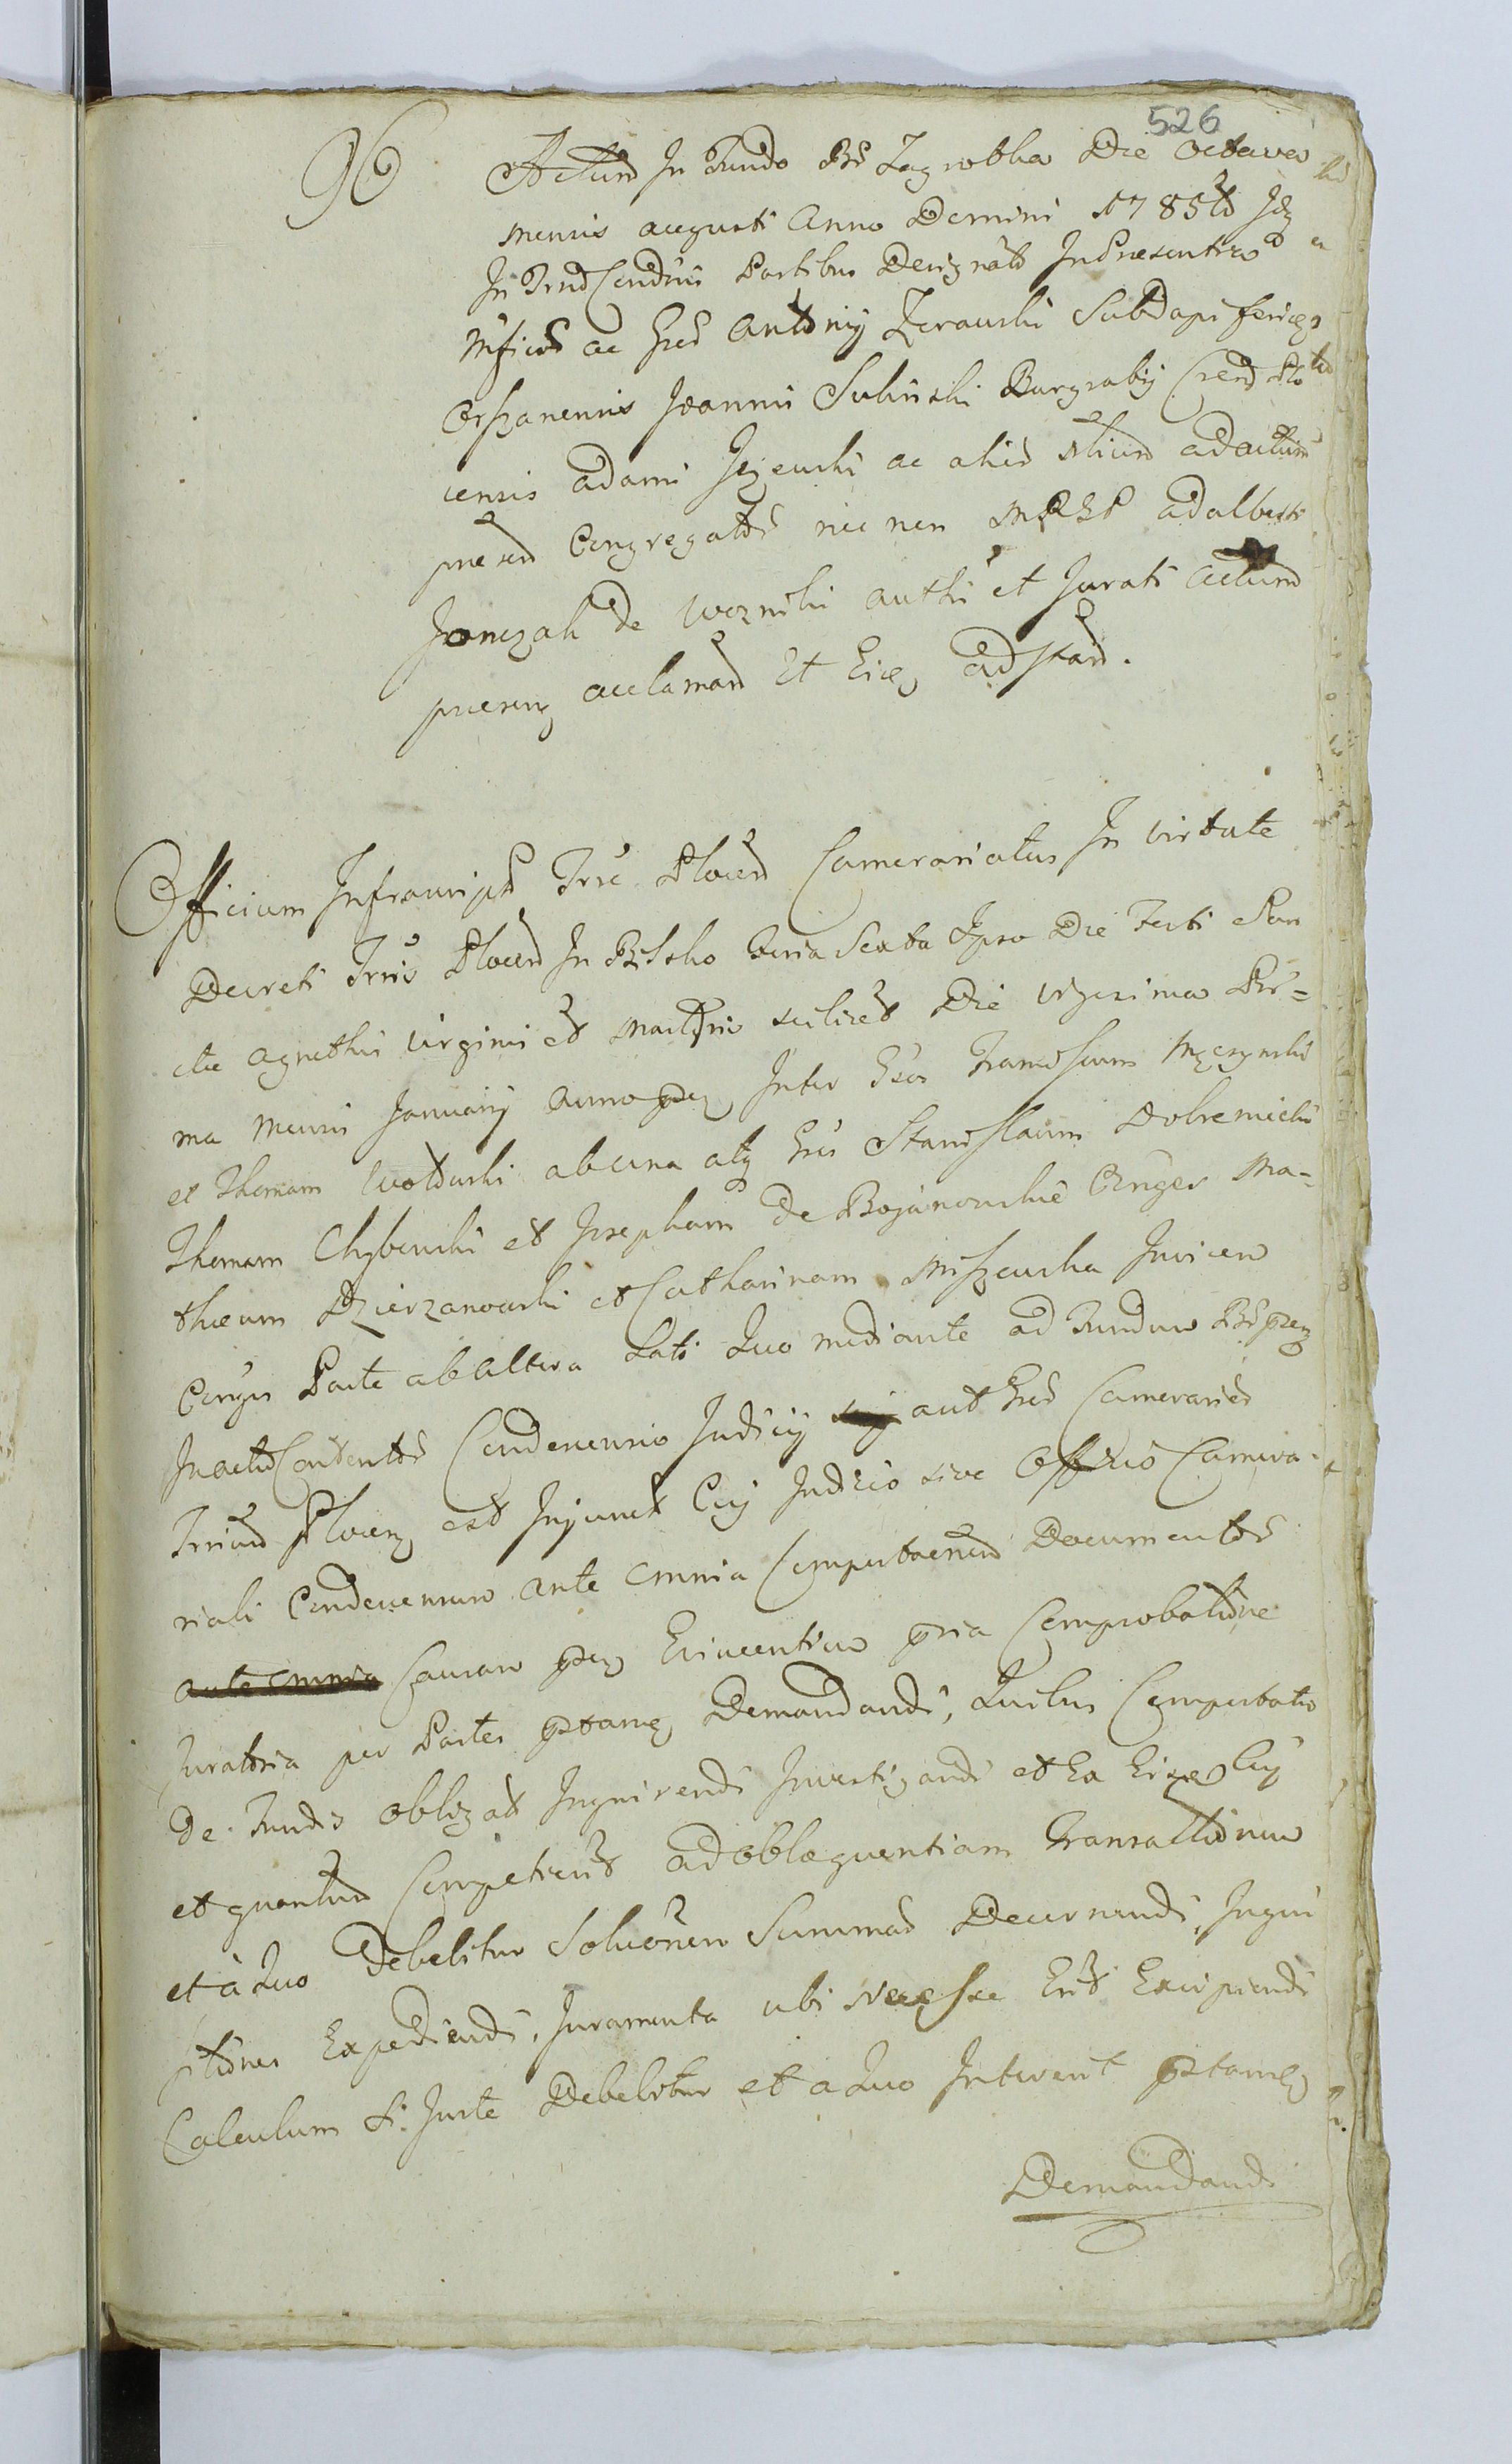 526
96
Actum In Fundo Bor Zagrobka Die octava
mensis augusti Anno Domini 1785to Idq
In Trnd Condnis Partibus Designato In Praesentia
Mficor ac Grsd Antonij Zerawski Subdapiferiq
Orszanensis Joannis Sulinski Burgrabij Crend Plo
censis adami Jezewski ac alior Nlium ad actum
praesen Congregator nec non MRSP adalberti
Jonczak de Woznihi authi et Jurati actum
praesenq acclaman Et Eieq adstan.
Officium Infrascript Trrae Plocen Camerariatus In Virtute
Decreti Trris Plocen In Bilsko Feria Sexta Ipso Die Festi San
ctae Agnethis Virginis et Martyris scilicet Die vigesima Pri=
ma Mensis Januarij Annopsq Inter Gsos Franciscum Myszynski
et Thomam Woltowski ab una atq Grsos Stanislaum Dobrenieki
Thomam Chybowski et Josepham de Bojanowskie Conges Ma=
thaeum Dzierzanowski et Catharinam Miszewska Invicem
Conges Parte ab altera Lati Quo mediante ad Fundum Bor psq
In actu Contentor Condescensio Judicij aut Grsd Camerarior
Trrium Plocen est Injunct Cuj Judicio sive Officio Camera
riali Condescensuro ante omnia Comportaenem Documentor
ante omnia Causam psq Evincentium pria Comprobatione
Juratoria per Partes pstanq Demandandi, Quibus Comportatis
De Fundis obligat Inquirendi Investigandi et Ex Eisq Cuj
et quantum Competierit ad obloquentiam Transactionum
et a Quo Debebitur Solucoñem Summar Decernendi, Inqui
sitiones Expediendi, Juramenta ubi Necesse Erit Excipiendi
Calculum Si Juste Debebitur et a Quo Intererit pstanq
Demandandi